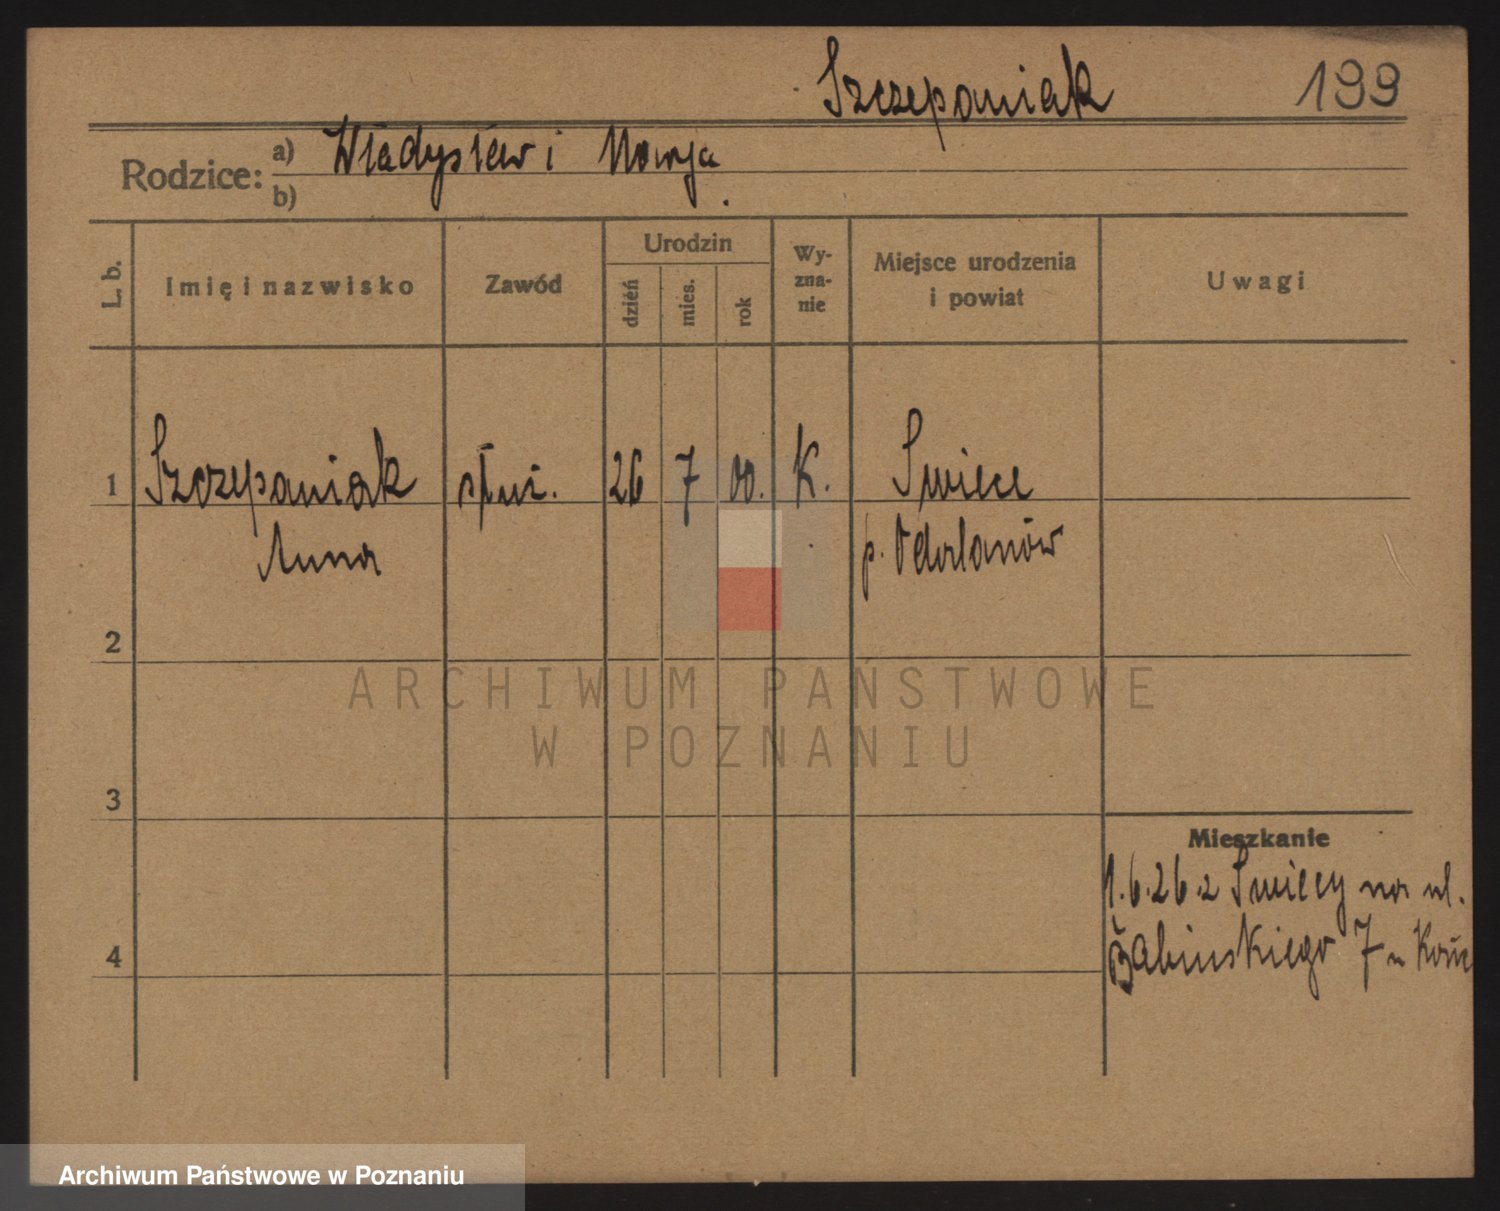 Szczepaniak 199
Rodzice: a) Władysław i Marja
b)
L. b. Imię i nazwisko Zawód Urodzin dzień mies. rok Wy-zna-nie Miejsce urodzenia i powiat Uwagi
1 Szczepaniak służ. 26 7 00. K. Śmiece
Anna p. Odolanów
2
ARCHIWUM PAŃSTWOWE
W POZNANIU
3
Mieszkanie
1.6.26 z na ul.
4 7
Archiwum Państwowe w Poznaniu